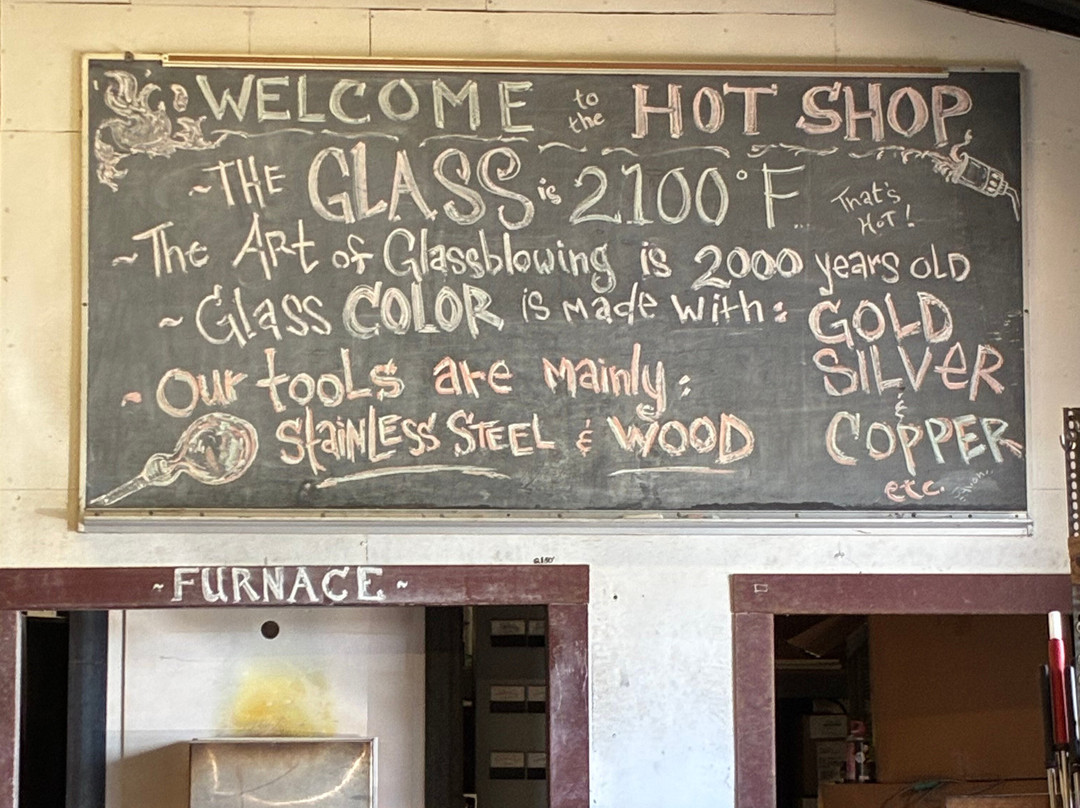 WELCOME to the HOT SHOP
~THE GLASS is 2100°F
That's HOT!
~The Art of Glassblowing is 2000 years OLD
~Glass COLOR is made with: GOLD
SILVER
&
COPPER
etc.
~Our tools are mainly:
Stainless Steel & WOOD
~FURNACE~